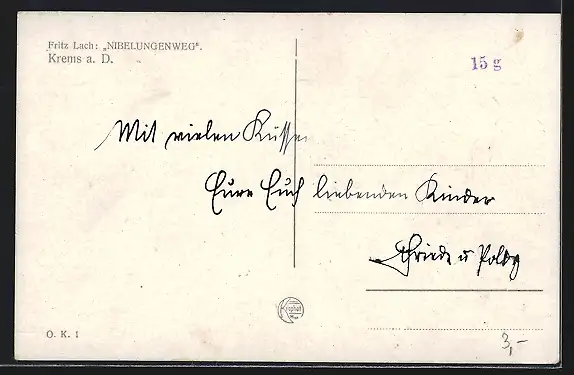 Fritz Lach: „NIBELUNGENWEG“.
Krems a. D.
15 g
Mit vielen Küssen
Eure Euch liebenden Kinder
Friede u Poldy
O. K. 1
3,-